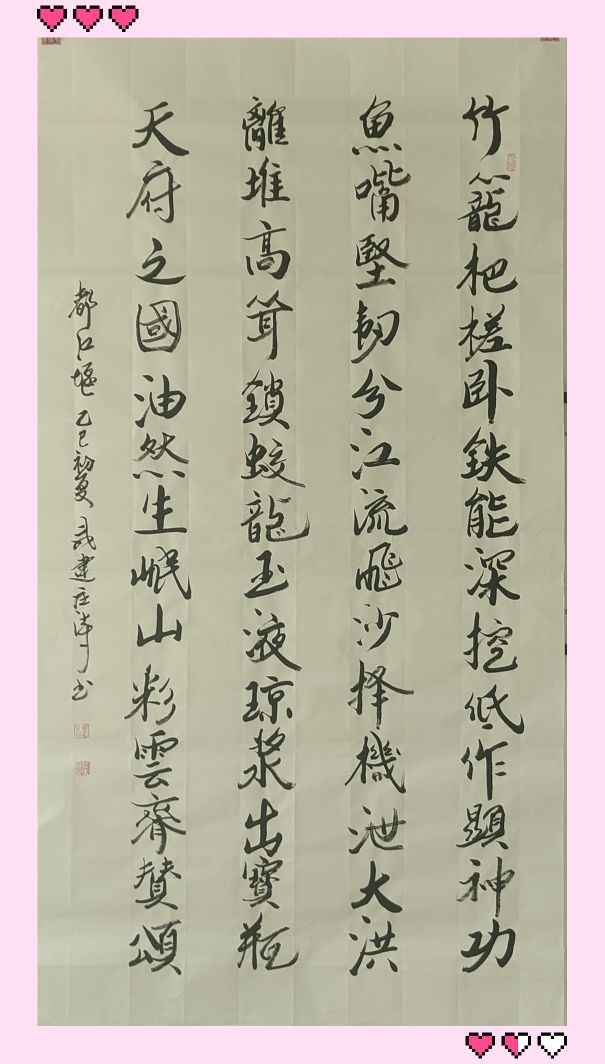 竹籠杷槎卧鉄能深挖低作顕神功
魚嘴堅韧分江流飛沙择機泄大洪
離堆高耸鎖蛟龍玉液琼浆出寶瓶
天府之國油然生岷山彩雲齊賛頌
都江堰 乙巳初夏 武建 书